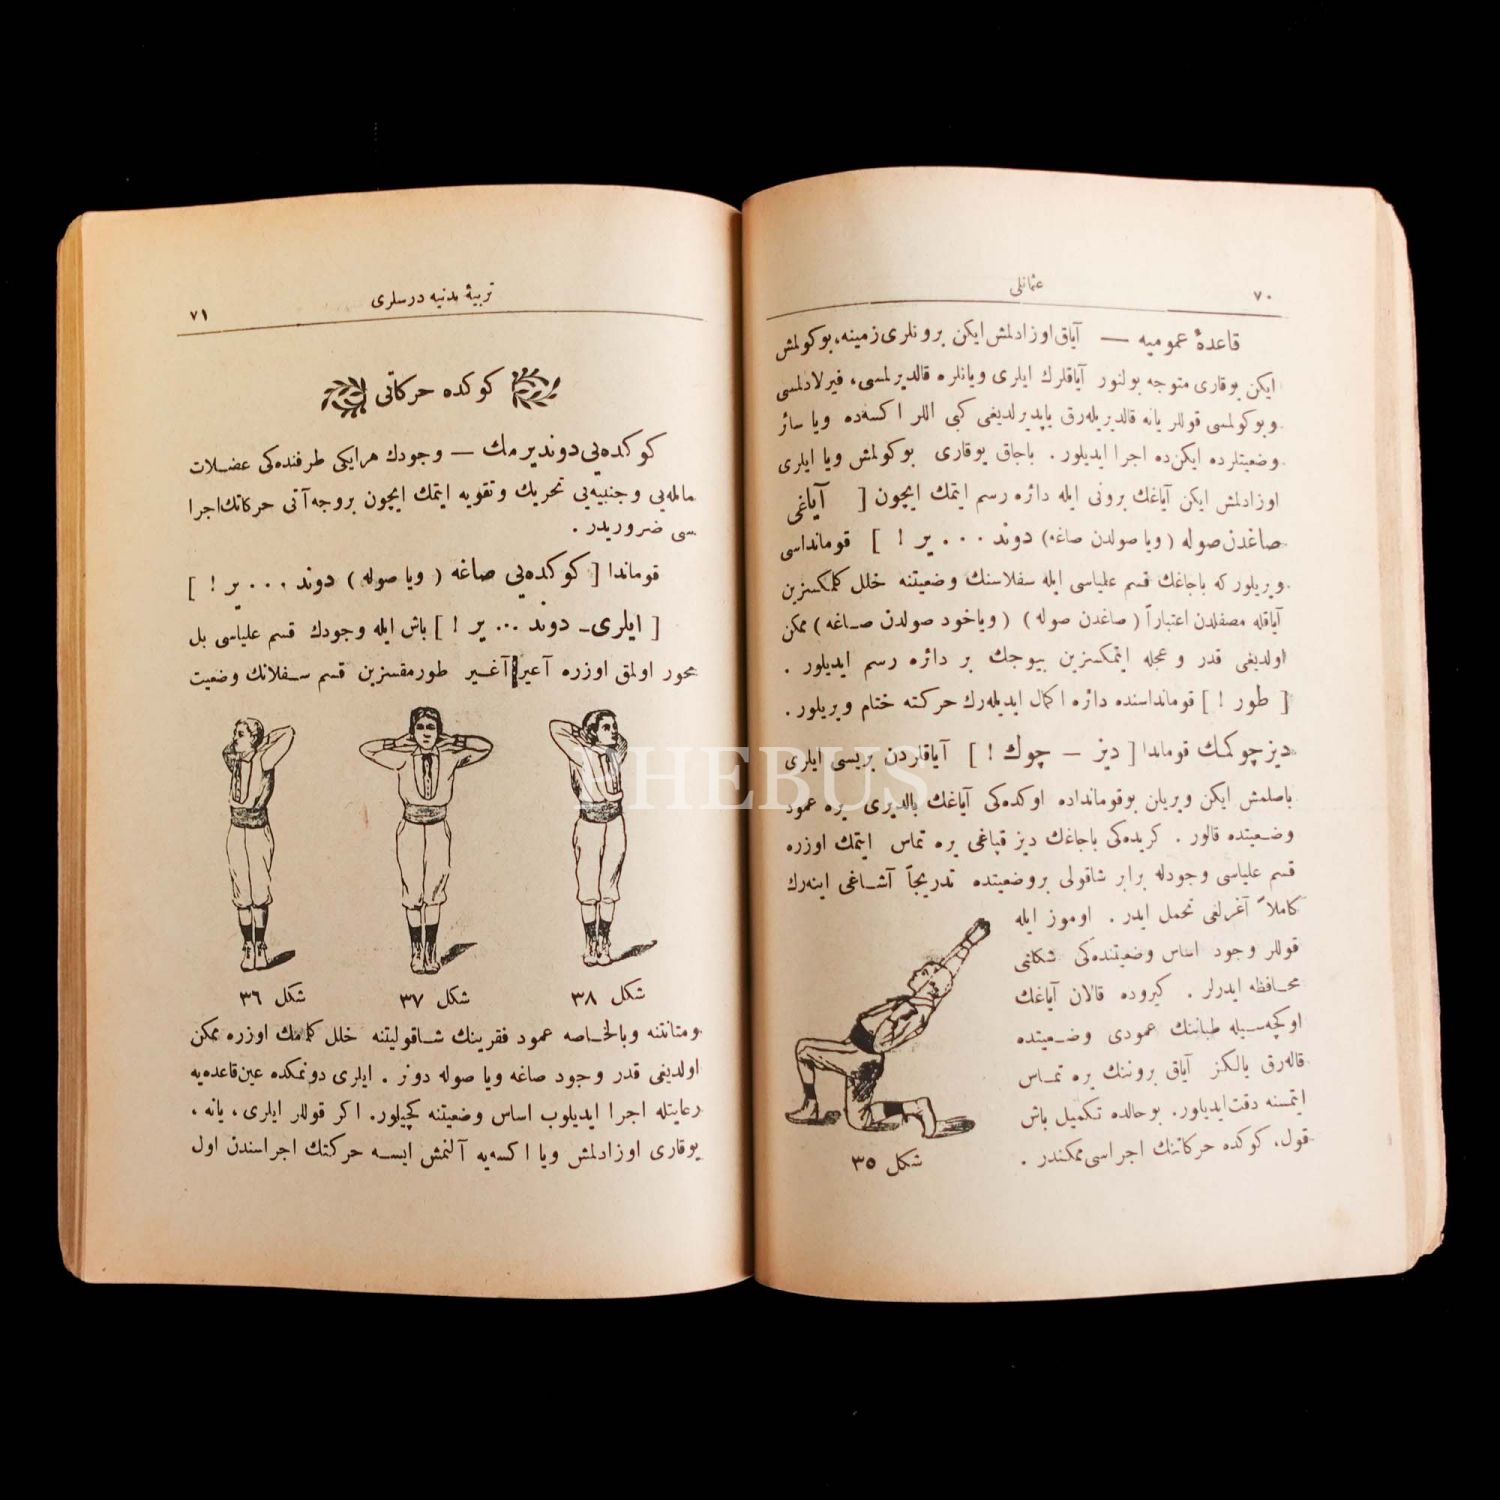 ٧٠
عثمانلی
قاعدهٔ عمومیه — آیاق اوزادلمش ایکن برونلری زمینه، بوکولمش
ایکن یوقاری متوجه بولنور آیاقلرك ایلری ویانلره قالدیرلمسی، فیرلادلمسی
وبوکولمسی قوللر یانه قالدیریله‌رق یاپدیرلدیغی کبی اللر اکسه‌ده ویا سائر
وضعیتلرده ایکن‌ده اجرا ایدیلور . باجاق یوقاری بوکولمش ویا ایلری
اوزادلمش ایکن آیاغك برونی ایله دائره رسم ایتمك ایچون [ آیاغی
صاغدن صوله ( ویا صولدن صاغه) دوند . . . یر ! ] قومانداسی
ویریلور که باجاغك قسم علیاسی ایله سفلاسنك وضعیتنه خلل کلمکسزین
آیاقله مفصلدن اعتباراً ( صاغدن صوله ) ( ویاخود صولدن صاغه ) ممکن
اولدیغی قدر و عجله ایتمکسزین بیوجك بر دائره رسم ایدیلور .
[ طور ! ] قومانداسنده دائره اکمال ایدیله‌رك حرکته ختام ویریلور .
دیز چوکمك قوماندا [ دیز — چوك ! ] آیاقلردن بریسی ایلری
باصلمش ایکن ویریلن بوقومانداده اوکده‌کی آیاغك بالدیری یره عمود
وضعیتده قالور . کریده‌کی باجاغك دیز قپاغی یره تماس ایتمك اوزره
قسم علیاسی وجودله برابر شاقولی بروضعیتده تدریجاً آشاغی اینه‌رك
کاملاً آغرلغی تحمل ایدر . اوموز ایله
قوللر وجود اساس وضعیتنده‌کی شکلنی
محافظه ایدرلر . کیروده قالان آیاغك
اوکچه‌سیله طباننك عمودی وضعیتده
قاله‌رق یالکز آیاق بروننك یره تماس
ایتمسنه دقت ایدیلور. بوحالده تکمیل باش
قول، کوکده حرکاتنك اجراسی ممکندر .
شکل ٣٥
تربیهٔ بدنیه درسلری
٧١
کوکده حرکاتی
کوکده‌یی دوندیرمك — وجودك هرایکی طرفنده‌کی عضلات
مائله‌یی وجنبیه‌یی تحریك وتقویه ایتمك ایچون بروجه آتی حرکاتك اجرا
سی ضروریدر .
قوماندا [ کوکده‌یی صاغه ( ویا صوله ) دوند . . . یر ! ]
[ ایلری — دوند ... یر ! ] باش ایله وجودك قسم علیاسی بل
محور اولمق اوزره آغیر آغیر طورمقسزین قسم سفلانك وضعیت
شکل ٣٨
شکل ٣٧
شکل ٣٦
ومتانتنه وبالخاصه عمود فقرینك شاقولیتنه خلل کلمامك اوزره ممکن
اولدیغی قدر وجود صاغه ویا صوله دونر . ایلری دونمکده عین قاعده‌یه
رعایتله اجرا ایدیلوب اساس وضعیتنه کچیلور. اکر قوللر ایلری ، یانه ،
یوقاری اوزادلمش ویا اکسه‌یه آلنمش ایسه حرکتك اجراسندن اول
PHEBUS